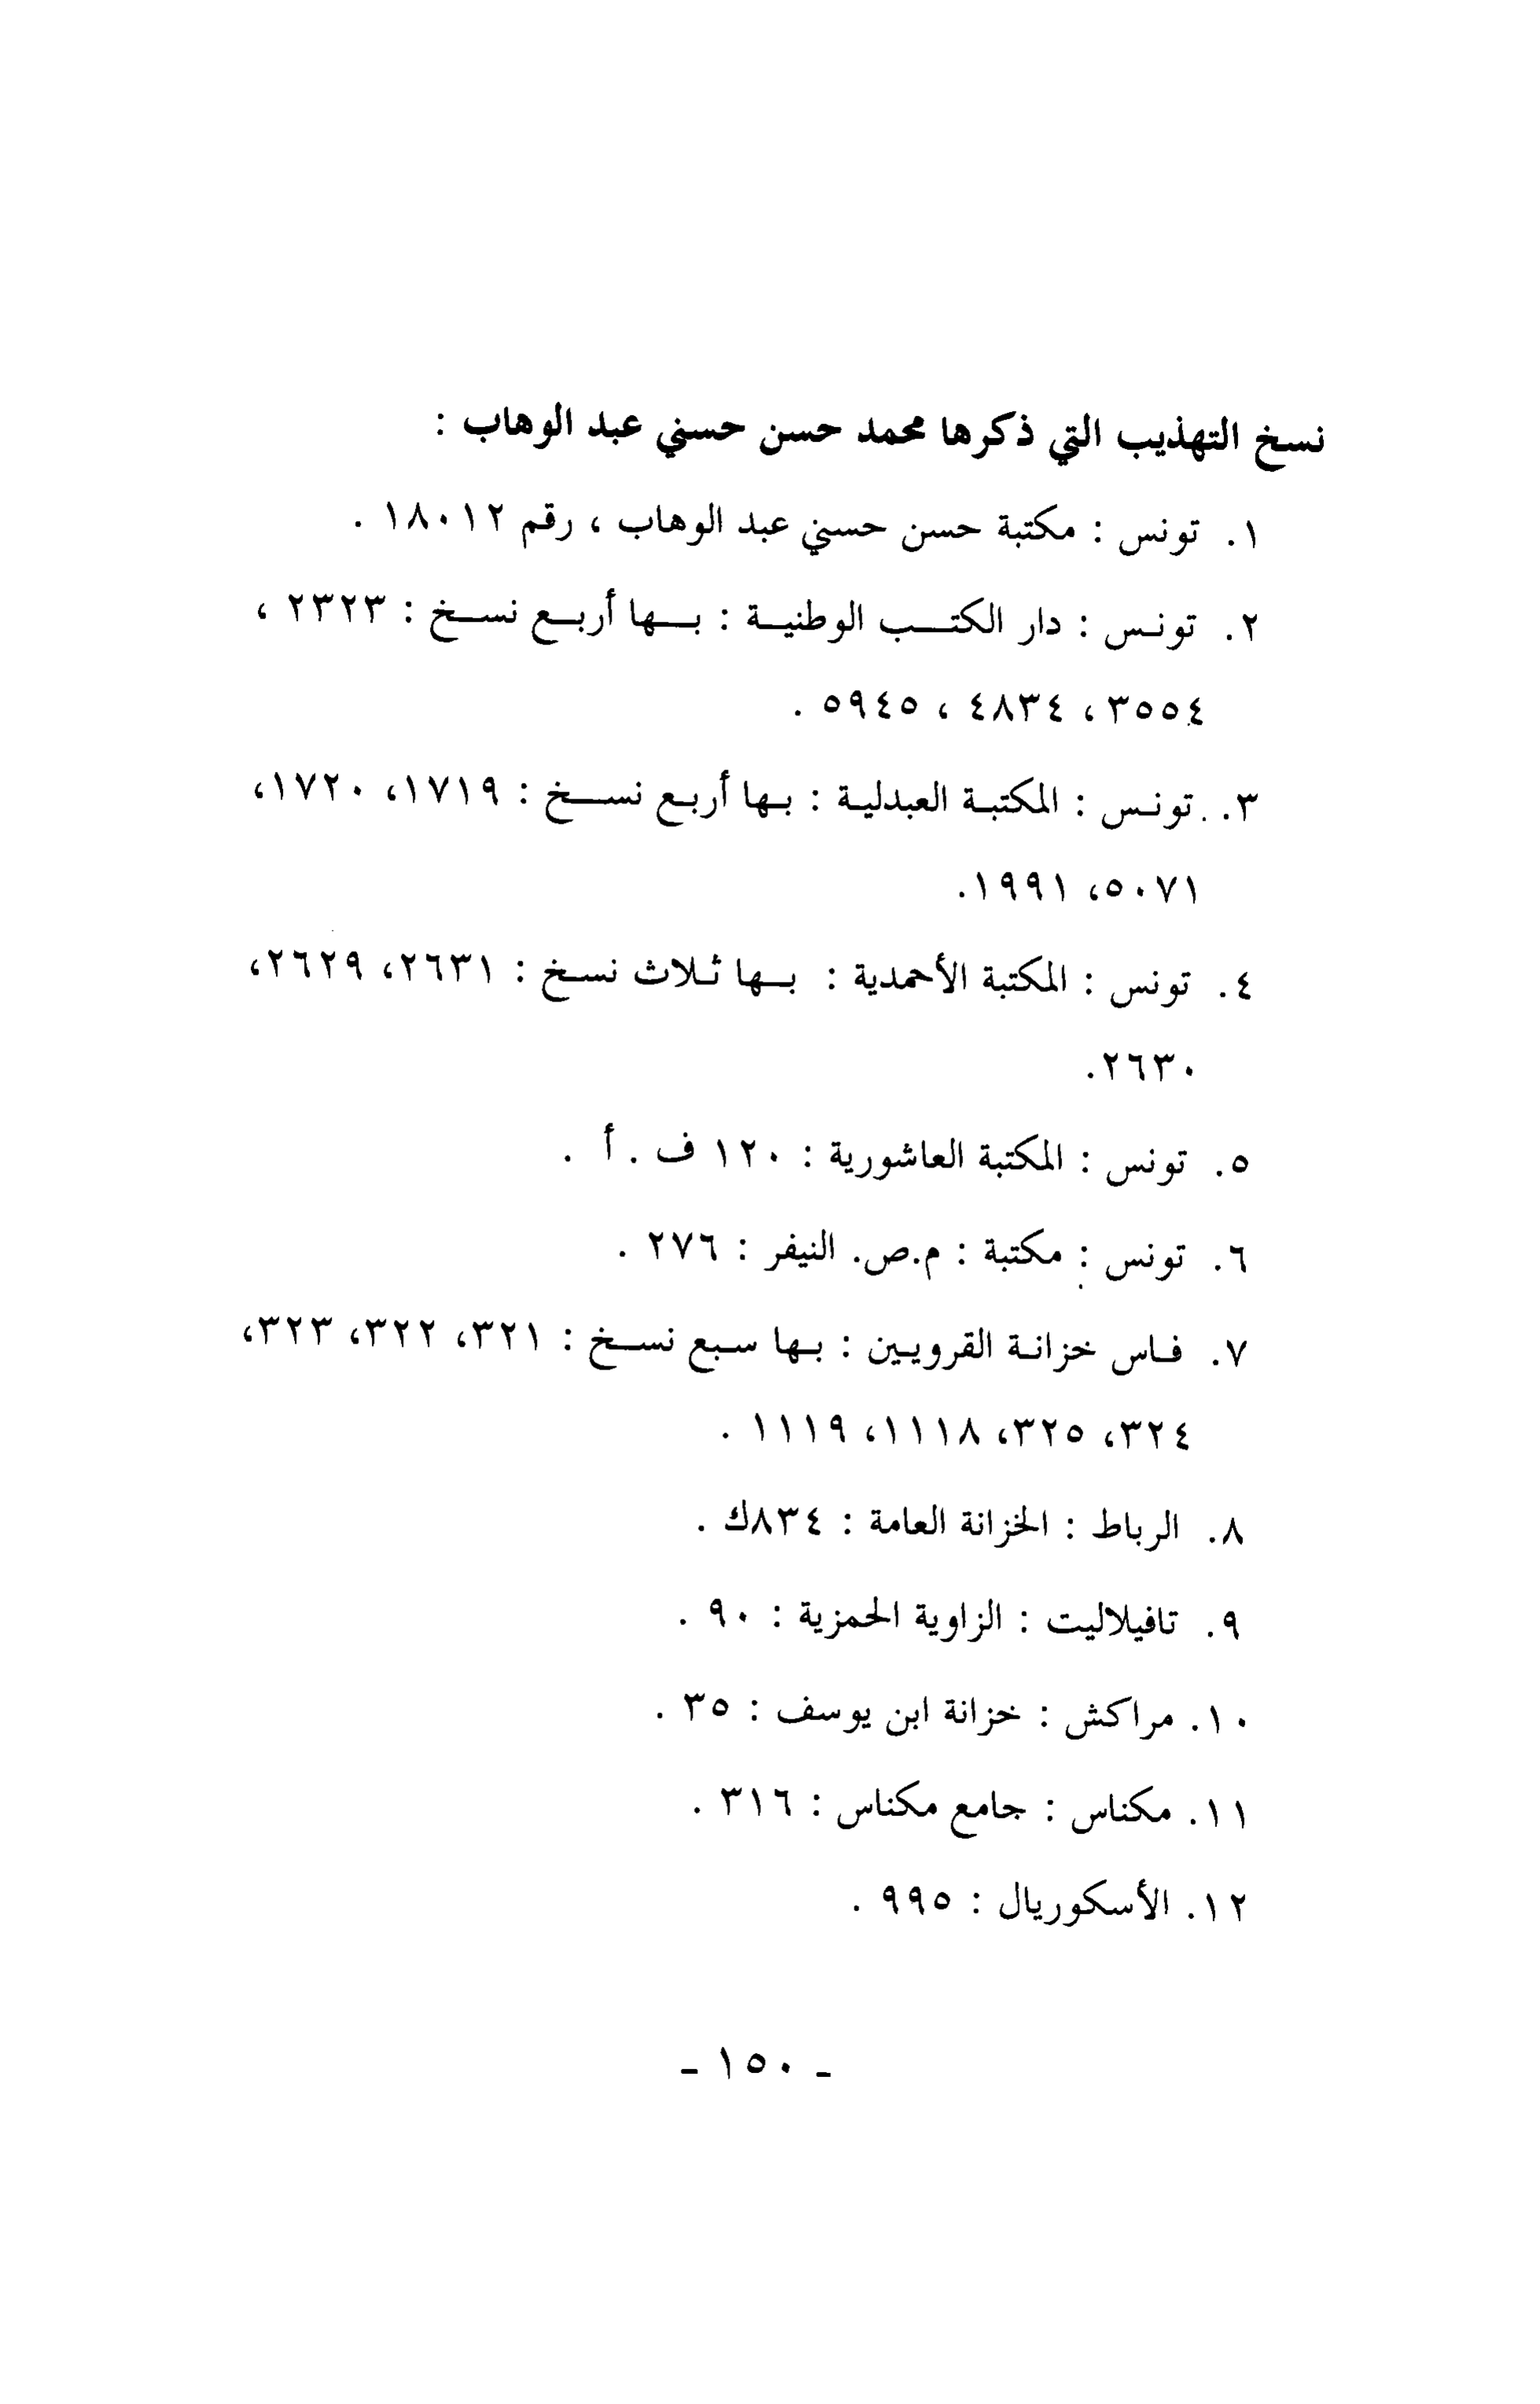 نسخ التهذيب التي ذكرها محمد حسن حسني عبد الوهاب :
١. تونس : مكتبة حسن حسني عبد الوهاب ، رقم ١٨٠١٢ .
٢. تونس : دار الكتب الوطنية : بها أربع نسخ : ٢٣٢٣ ،
٣٥٥٤ ، ٤٨٣٤ ، ٥٩٤٥ .
٣. تونس : المكتبة العبدلية : بها أربع نسخ : ١٧١٩، ١٧٢٠،
٥٠٧١، ١٩٩١.
٤. تونس : المكتبة الأحمدية : بها ثلاث نسخ : ٢٦٣١، ٢٦٢٩،
٢٦٣٠.
٥. تونس : المكتبة العاشورية : ١٢٠ ف . أ .
٦. تونس : مكتبة : م.ص. النيفر : ٢٧٦ .
٧. فاس خزانة القرويين : بها سبع نسخ : ٣٢١، ٣٢٢، ٣٢٣،
٣٢٤، ٣٢٥، ١١١٨، ١١١٩ .
٨. الرباط : الخزانة العامة : ٨٣٤ك .
٩. تافيلاليت : الزاوية الحمزية : ٩٠ .
١٠. مراكش : خزانة ابن يوسف : ٣٥ .
١١. مكناس : جامع مكناس : ٣١٦ .
١٢. الأسكوريال : ٩٩٥ .
ـ ١٥٠ ـ